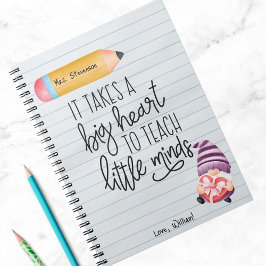 Mrs. Stevenson
IT TAKES A
big heart
TO TEACH
little minds
Love, William!